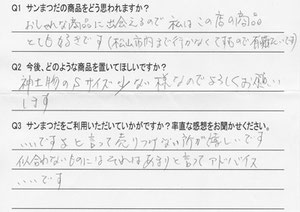 Q1 サンまつだの商品をどう思われますか?
おしゃれな商品に出会えるので私はこの店の商品
とても好きです(松山市内まで行かなくてすむので有難いです)
Q2 今後、どのような商品を置いてほしいですか?
紳士物のSサイズ少ない様なのでよろしくお願い
します
Q3 サンまつだをご利用いただいていかがですか?率直な感想をお聞かせください。
いいですよと言って売りつけない所が嬉しいです
似合わないものにはそれはあまりと言ってアドバイス
いいです